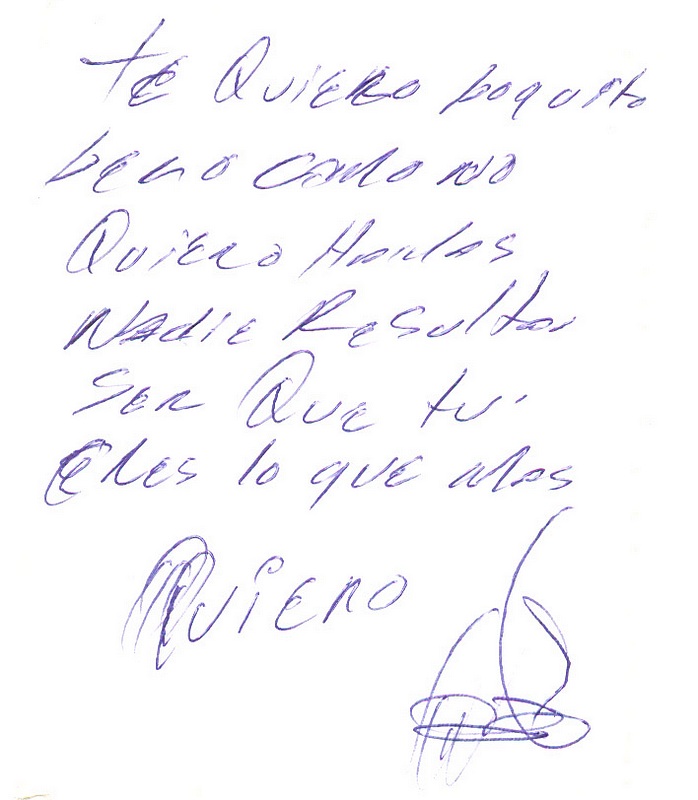 te Quiero poquito
pero como no
Quiero Ha mas
Nadie Resulta
Ser Que tu
eres lo que mas
Quiero